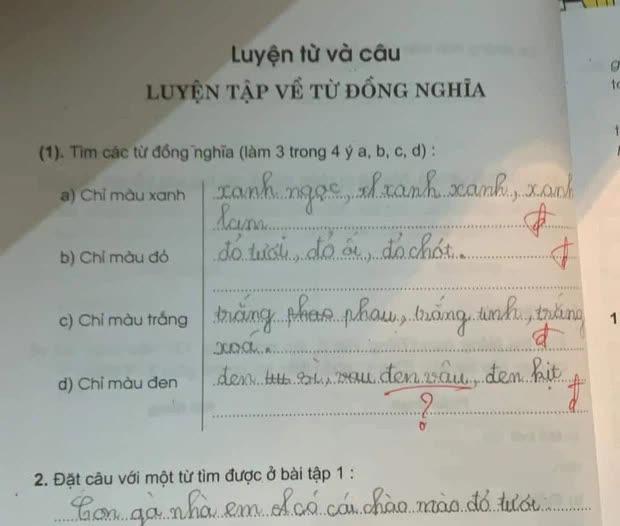 Luyện từ và câu
LUYỆN TẬP VỀ TỪ ĐỒNG NGHĨA
(1). Tìm các từ đồng nghĩa (làm 3 trong 4 ý a, b, c, d) :
a) Chỉ màu xanh xanh ngọc, xanh xanh, xanh
lam
đ
b) Chỉ màu đỏ đỏ tươi, đỏ ối, đỏ chót.
đ
c) Chỉ màu trắng trắng phau, trắng tinh, trắng
xoá.
đ
1
d) Chỉ màu đen đen sì, đen vâu, đen kịt
?
đ
2. Đặt câu với một từ tìm được ở bài tập 1 :
Con gà nhà em có cái chào mào đỏ tươi